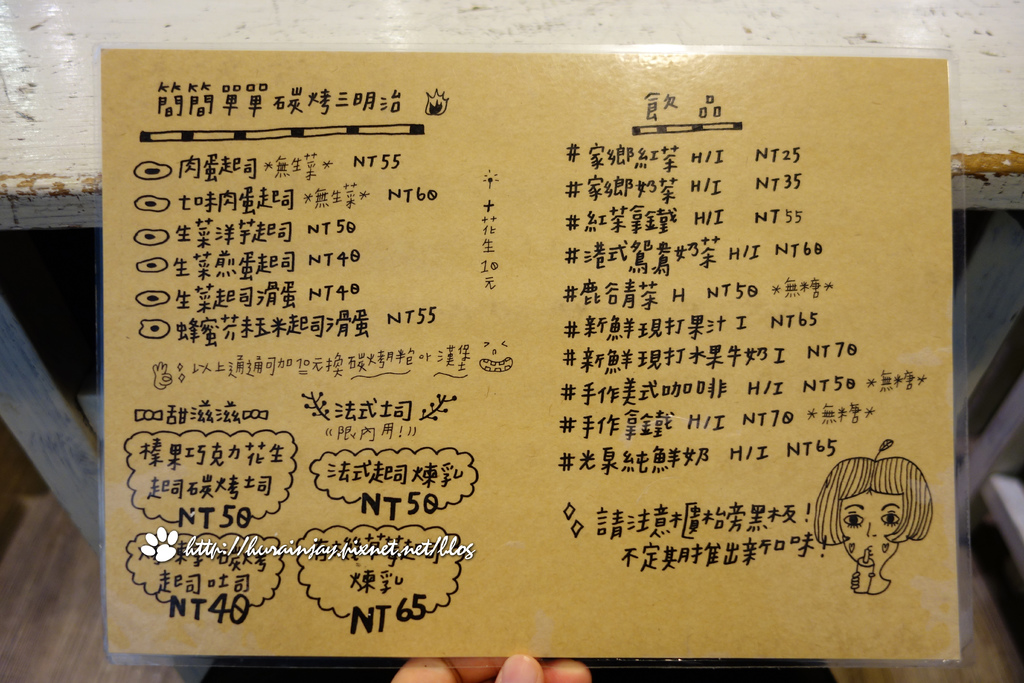 簡簡單單碳烤三明治
肉蛋起司 *無生菜* NT55
七味肉蛋起司 *無生菜* NT60
生菜洋芋起司 NT50
生菜煎蛋起司 NT40
生菜起司滑蛋 NT40
蜂蜜芥末玉米起司滑蛋 NT55
+花生10元
以上通通可加10元換碳烤軟包or漢堡
甜滋滋
榛果巧克力花生
起司碳烤土司
NT50
碳烤
起司吐司
NT40
法式土司
((限內用!))
法式起司煉乳
NT50
煉乳
NT65
飲品
#家鄉紅茶 H/I NT25
#家鄉奶茶 H/I NT35
#紅茶拿鐵 H/I NT55
#港式鴛鴦奶茶 H/I NT60
#鹿谷青茶 H NT50 *無糖*
#新鮮現打果汁 I NT65
#新鮮現打水果牛奶 I NT70
#手作美式咖啡 H/I NT50 *無糖*
#手作拿鐵 H/I NT70 *無糖*
#光泉純鮮奶 H/I NT65
請注意櫃枱旁黑板!
不定期推出新口味!
http://hurainjay.pixnet.net/blog